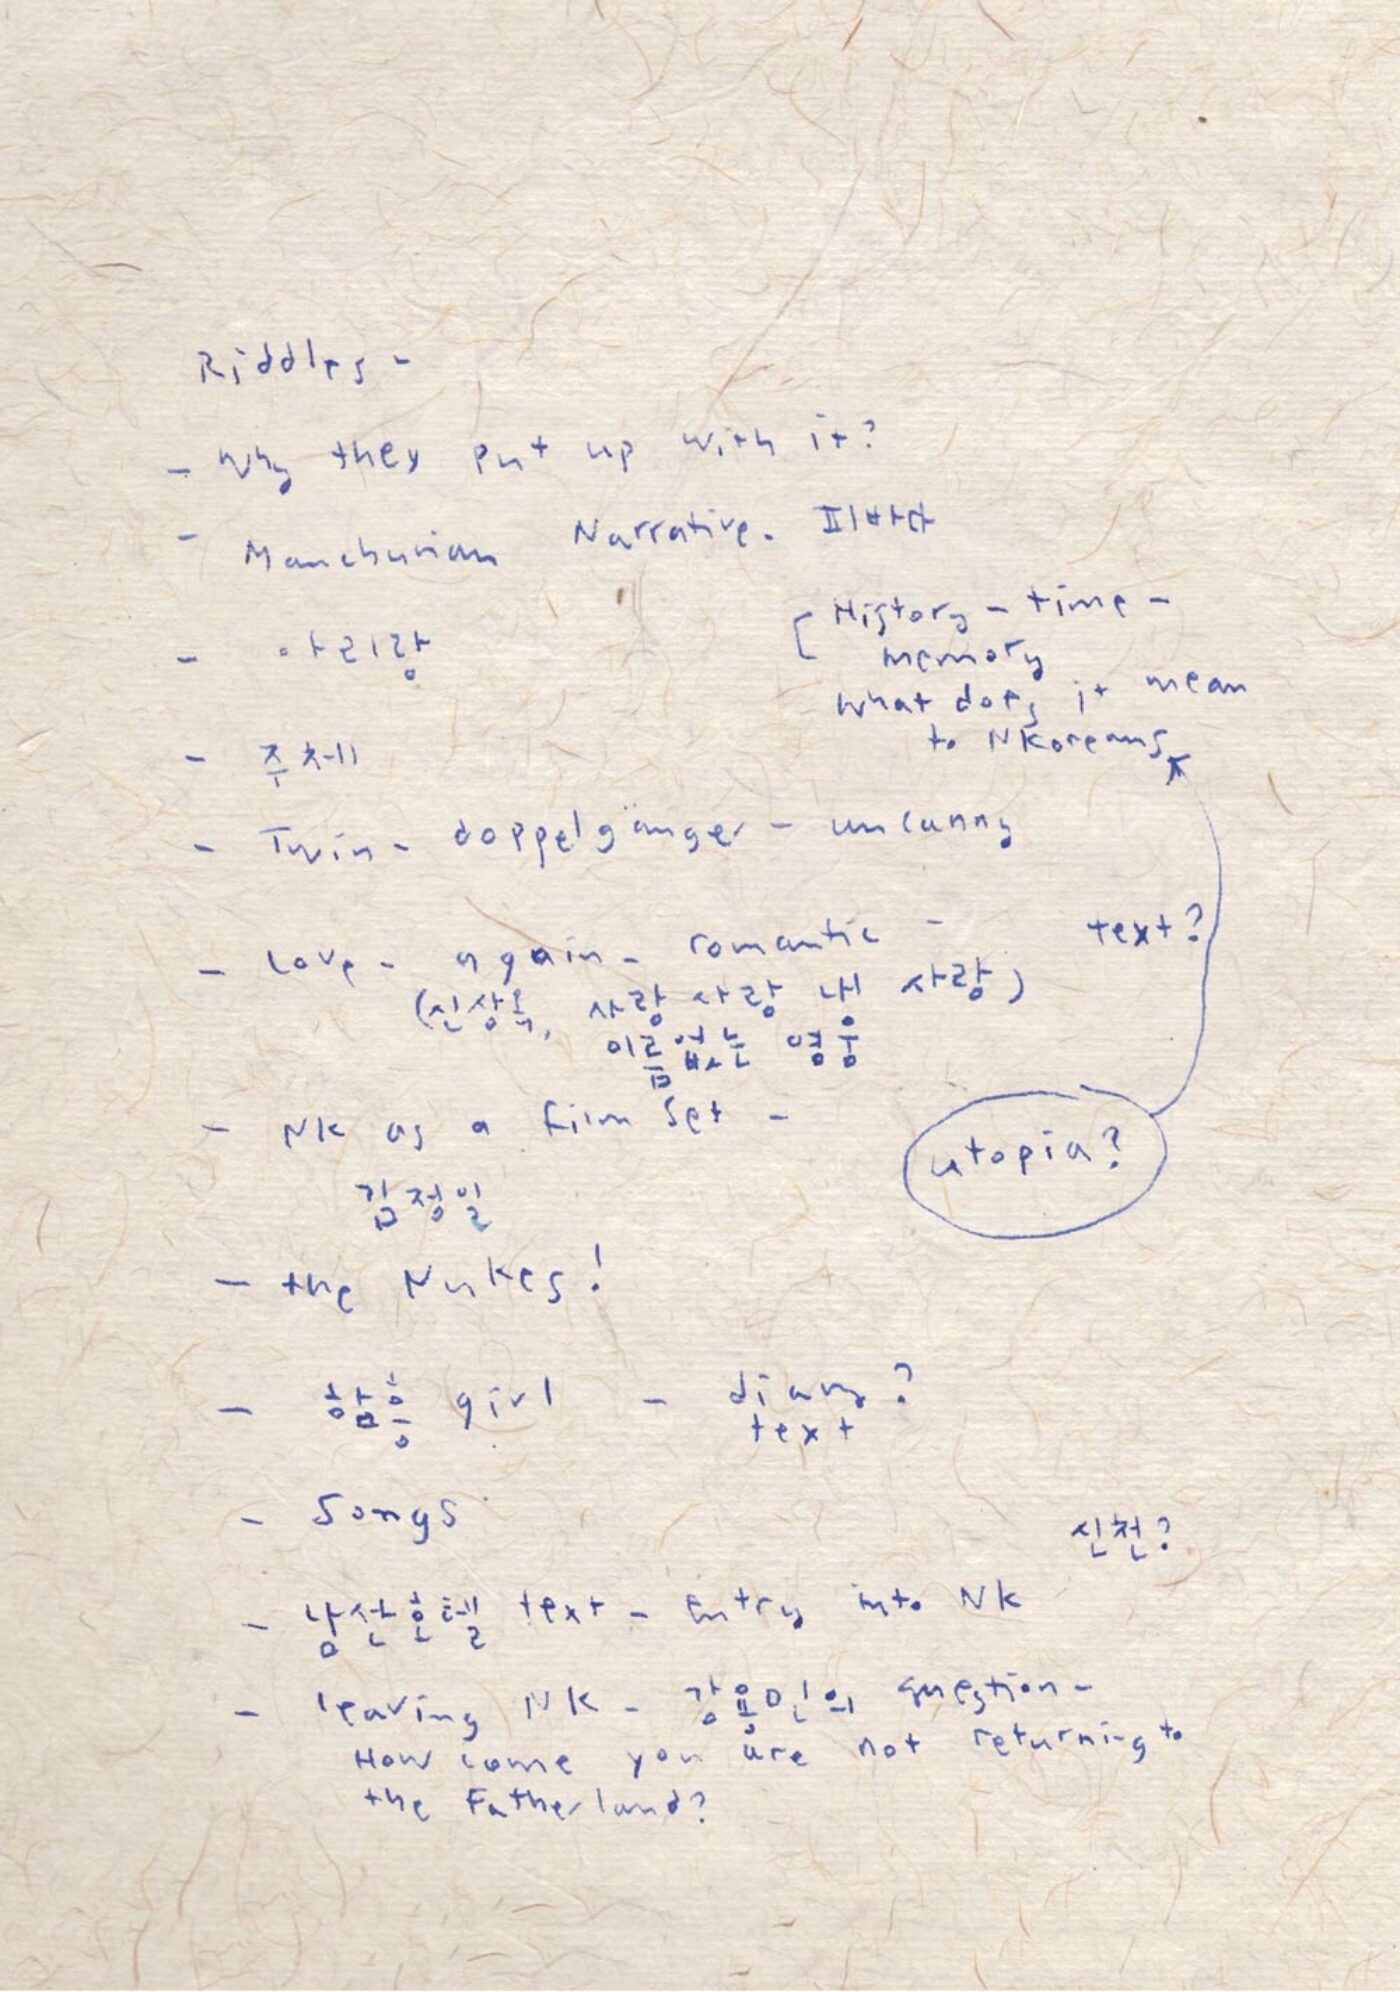 Riddles -
- Why they put up with it?
- Manchurian Narrative. 피바다
- 아리랑
[ History - time -
memory
what does it mean
to NKoreans
- 주체
- Twin - doppelgänger - uncanny
- Love - again - romantic - text?
(신상옥, 사랑 사랑 내 사랑)
이름없는 영웅
- NK as a film set -
김정일
utopia?
- the Nukes!
- 함흥 girl - diary?
text
- Songs
신천?
- text - Entry into NK
- leaving NK - question -
How come you are not returning to
the Fatherland?